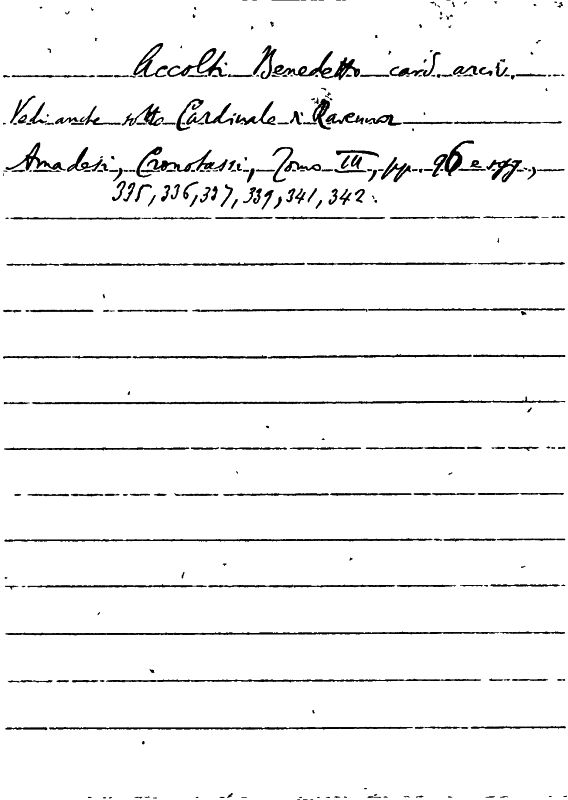 Accolti Benedetto card. arciv.
Vedi anche sotto Cardinale di Ravenna
Amadesi, Cronotassi, Tomo III, pp. 96 e sgg.,
335, 336, 337, 339, 341, 342.